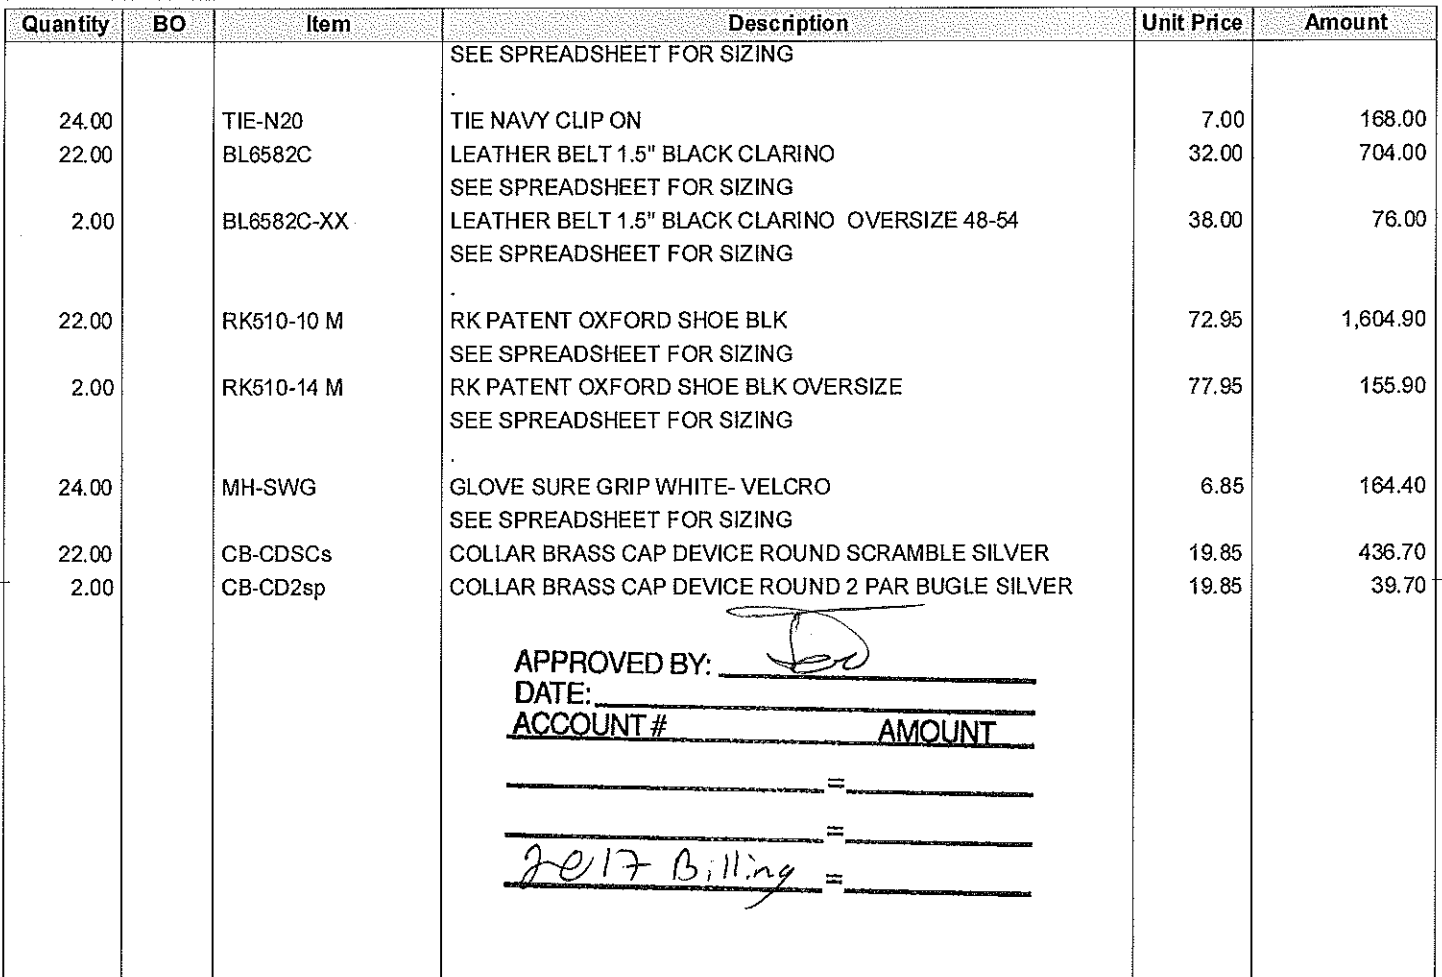 Quantity BO Item Description Unit Price Amount
SEE SPREADSHEET FOR SIZING
.
24.00 TIE-N20 TIE NAVY CLIP ON 7.00 168.00
22.00 BL6582C LEATHER BELT 1.5" BLACK CLARINO 32.00 704.00
SEE SPREADSHEET FOR SIZING
2.00 BL6582C-XX LEATHER BELT 1.5" BLACK CLARINO OVERSIZE 48-54 38.00 76.00
SEE SPREADSHEET FOR SIZING
.
22.00 RK510-10 M RK PATENT OXFORD SHOE BLK 72.95 1,604.90
SEE SPREADSHEET FOR SIZING
2.00 RK510-14 M RK PATENT OXFORD SHOE BLK OVERSIZE 77.95 155.90
SEE SPREADSHEET FOR SIZING
.
24.00 MH-SWG GLOVE SURE GRIP WHITE- VELCRO 6.85 164.40
SEE SPREADSHEET FOR SIZING
22.00 CB-CDSCs COLLAR BRASS CAP DEVICE ROUND SCRAMBLE SILVER 19.85 436.70
2.00 CB-CD2sp COLLAR BRASS CAP DEVICE ROUND 2 PAR BUGLE SILVER 19.85 39.70
APPROVED BY:
DATE:
ACCOUNT # AMOUNT
=
=
2017 Billing =